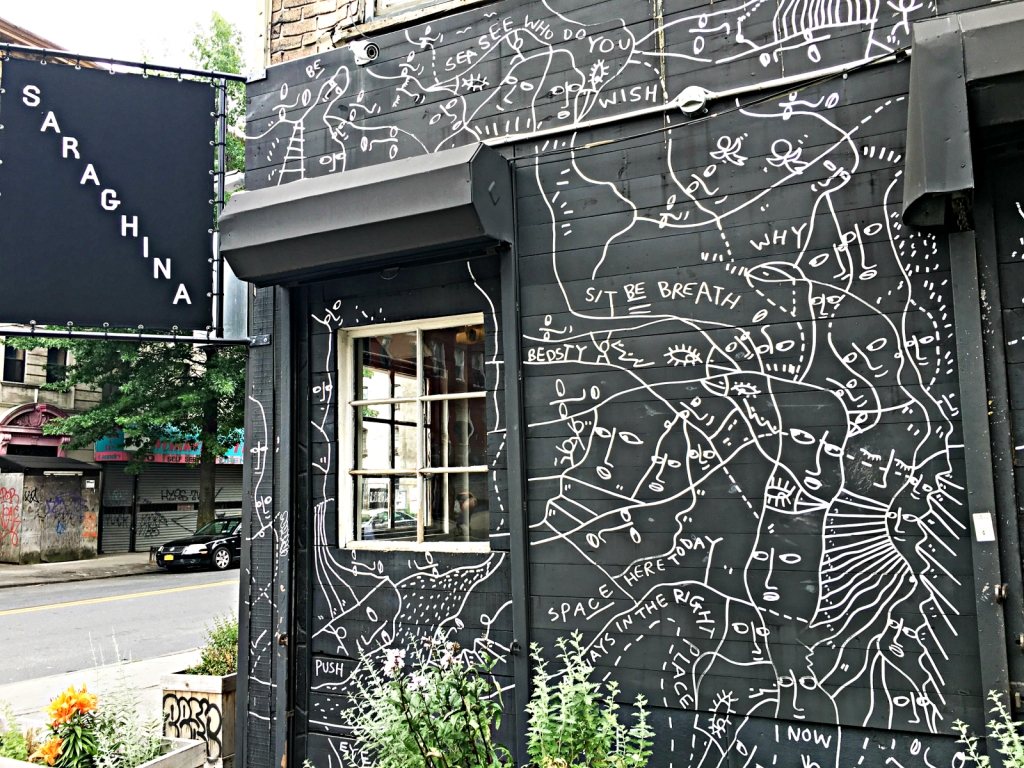 SARAGHINA
BE
SEA SEE WHO DO YOU
WISH
WHY
SIT BE BREATH
BEDSTY
HERE TODAY
SPACE
IN THE RIGHT
PLACE
PUSH
I NOW